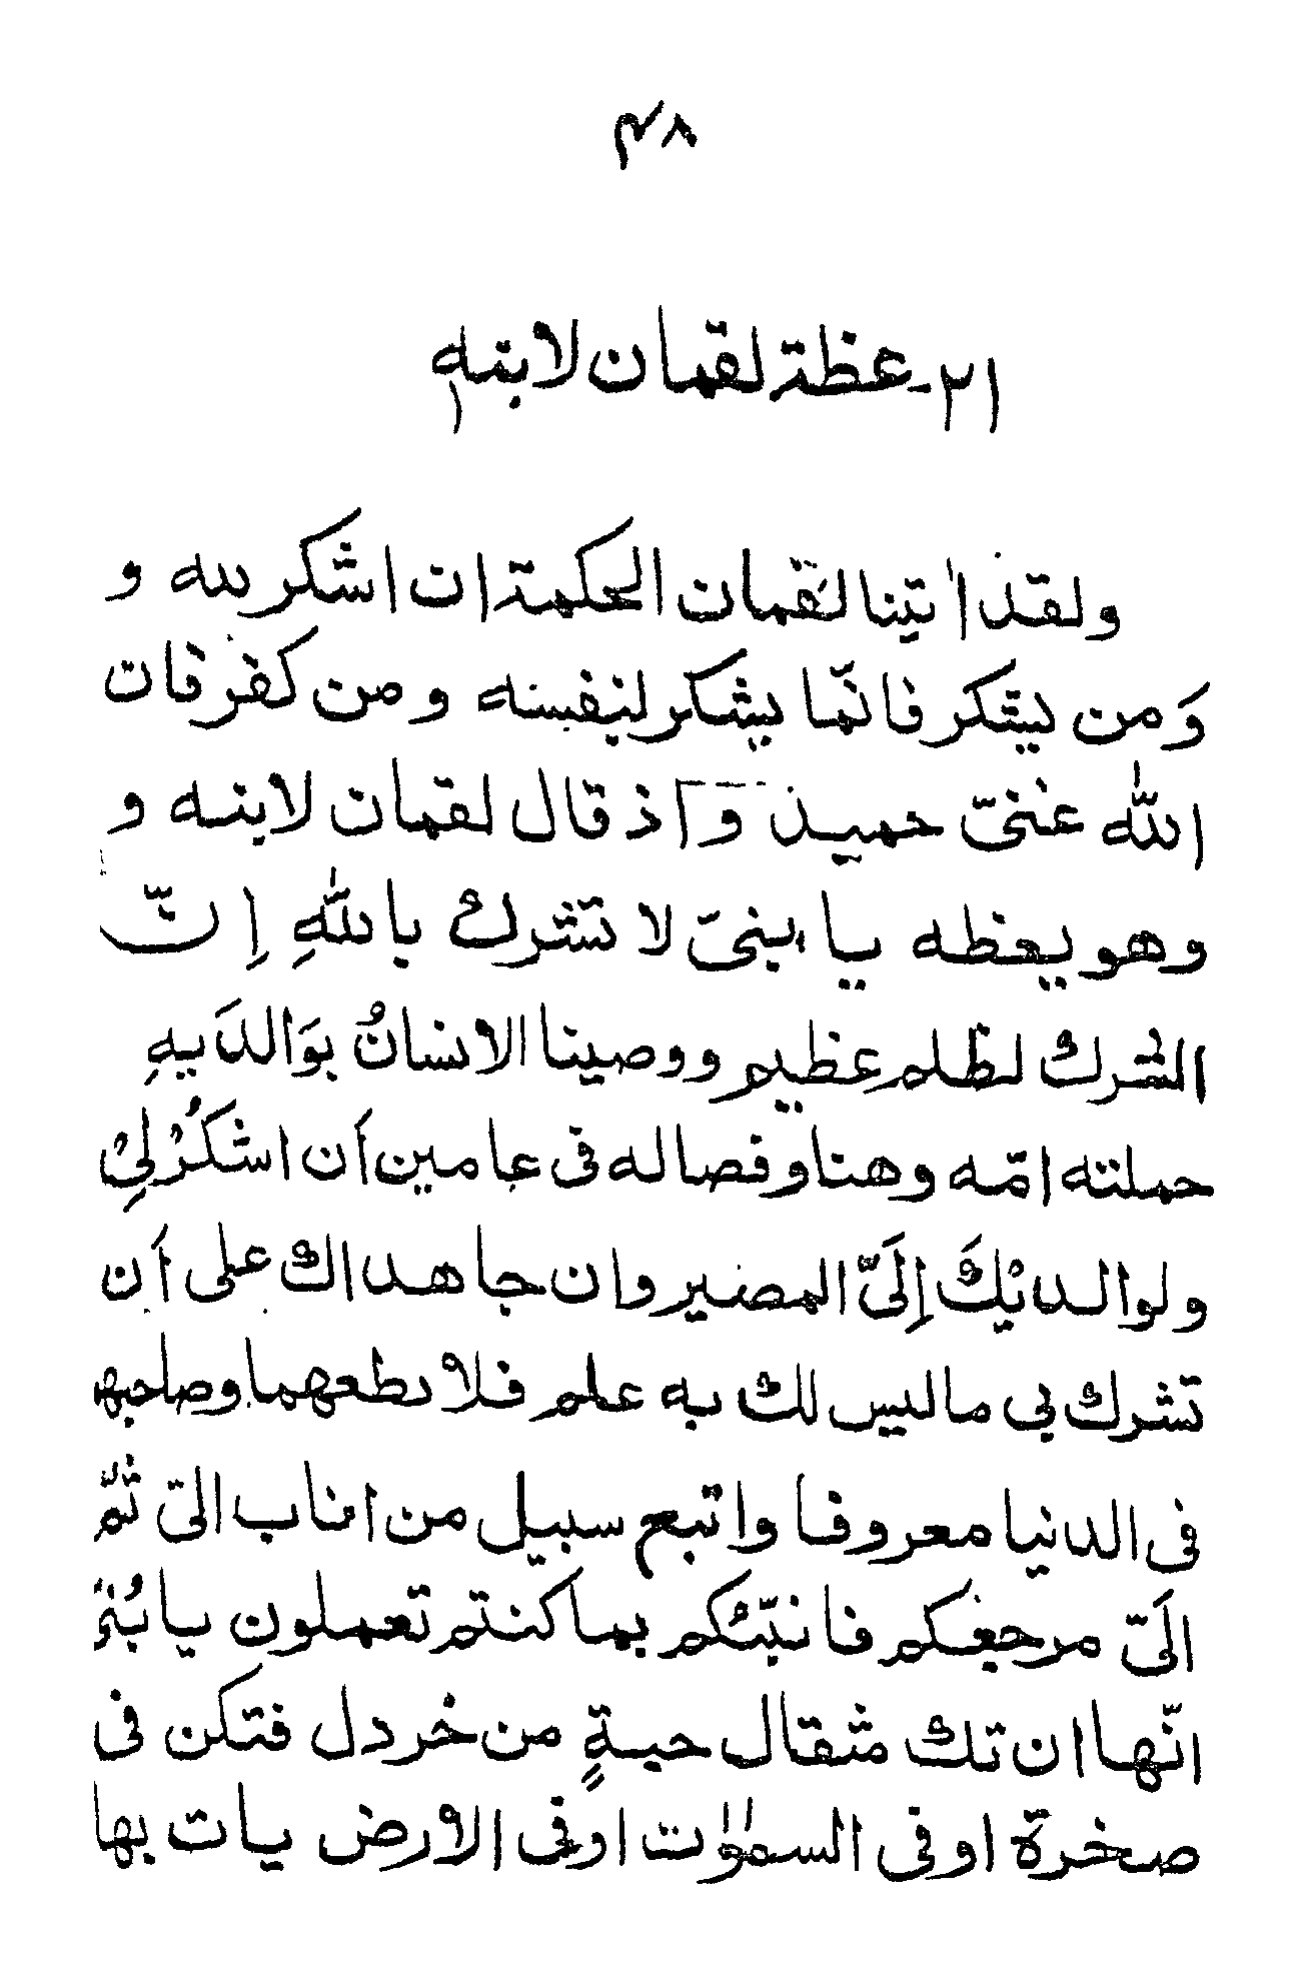 ۴۸
٢١- عظة لقمان لابنه
١
ولقد اٰتينا لقمان الحكمة ان اشكر لله و
وَمن يشكر فانّما يشكر لنفسه و من كفر فان
اللّٰه غنىّ حميد و اذ قال لقمان لابنه و
وهو يعظه يا بنىّ لا تشرك باللّٰهِ اِنّ
الشرك لظلم عظيم ووصينا الانسانُ بوَالدَيهِ
حملته امّه وهنا وفصاله فى عامين اَن اشكُرْ لِىْ
و لوالديْكَ اِلَىّ المصير وان جاهداك على اَن
تشرك بى ما ليس لك به علم فلا تطعهما وصاحبها
فى الدنيا معروفا واتبع سبيل من اناب الىّ ثمّ
الَىّ مرجعكم فانبّئكم بما كنتم تعملون يا بُنىّ
انّها ان تك مثقال حبةٍ من خردل فتكن فى
صخرة او فى السمٰوٰت او فى الارض يات بها